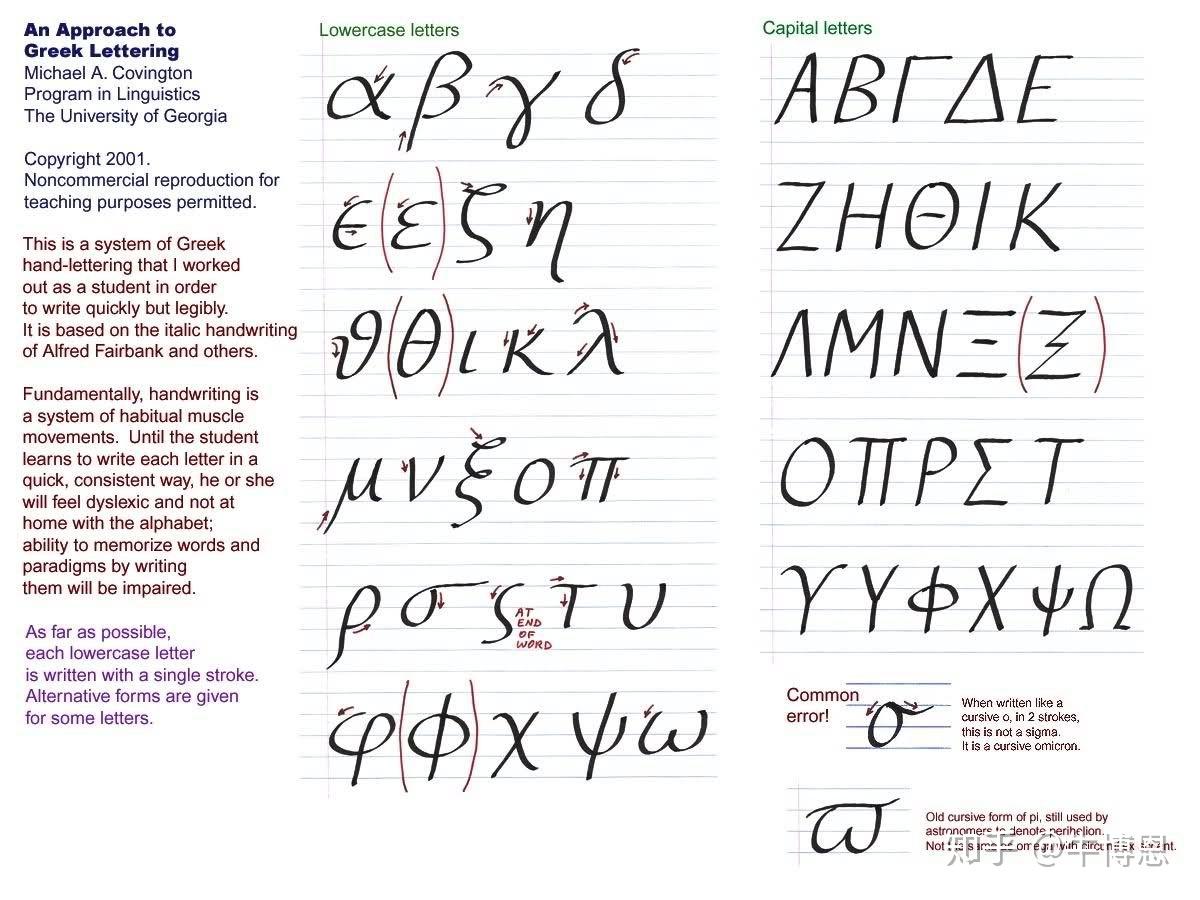 An Approach to
Greek Lettering
Michael A. Covington
Program in Linguistics
The University of Georgia
Copyright 2001.
Noncommercial reproduction for
teaching purposes permitted.
This is a system of Greek
hand-lettering that I worked
out as a student in order
to write quickly but legibly.
It is based on the italic handwriting
of Alfred Fairbank and others.
Fundamentally, handwriting is
a system of habitual muscle
movements. Until the student
learns to write each letter in a
quick, consistent way, he or she
will feel dyslexic and not at
home with the alphabet;
ability to memorize words and
paradigms by writing
them will be impaired.
As far as possible,
each lowercase letter
is written with a single stroke.
Alternative forms are given
for some letters.
Lowercase letters
α β γ δ
ϵ (ε) ζ η
ϑ (θ) ι κ λ
μ ν ξ ο π
ρ σ ς τ υ
AT
END
OF
WORD
φ (ϕ) χ ψ ω
Capital letters
Α Β Γ Δ Ε
Ζ Η Θ Ι Κ
Λ Μ Ν Ξ (Ξ)
Ο Π Ρ Σ Τ
ϒ Υ Φ Χ Ψ Ω
Common
error!
σ
When written like a
cursive o, in 2 strokes,
this is not a sigma.
It is a cursive omicron.
ϖ
Old cursive form of pi, still used by
astronomers to denote perihelion.
Not the same as omega with circumflex accent.
知乎 @牛博恩